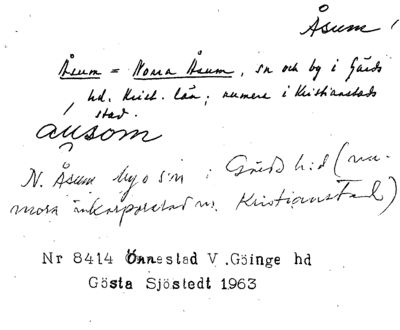 Åsum
Åsum = Norra Åsum, sn och by i Gärds
hd. Krist. län; numera i Kristianstads
stad.
åu̯som
N. Åsum by o sn i Gärds h:d (nu-
mera inkorporerad m. Kristianstad)
Nr 8414 Önnestad V .Göinge hd
Gösta Sjöstedt 1963